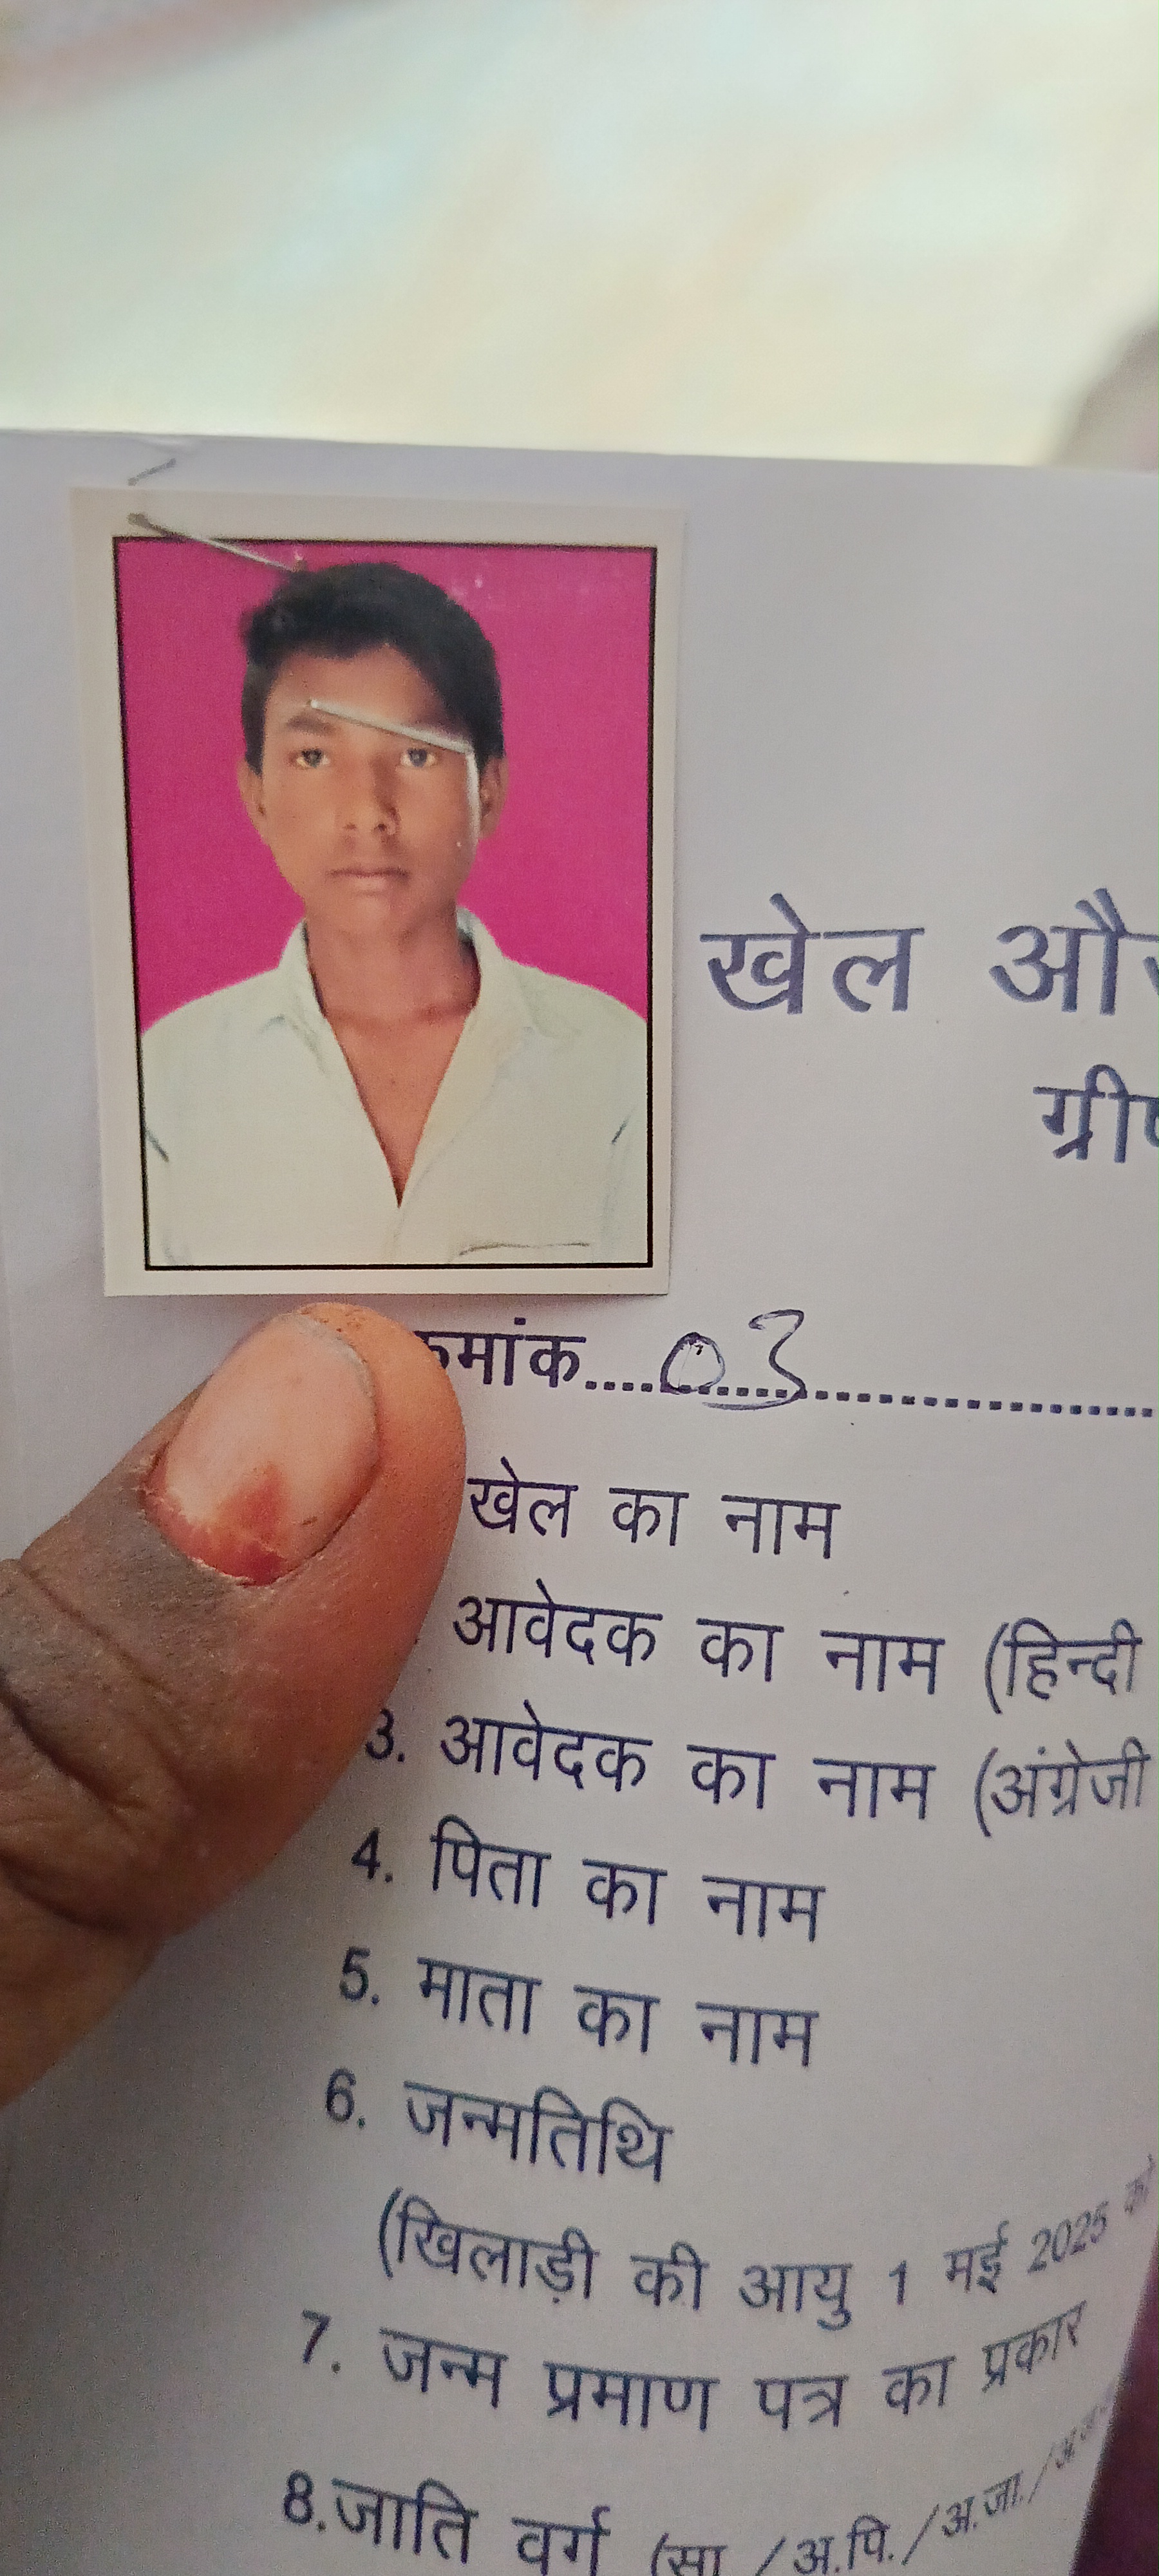 खेल
क्रमांक....03
खेल का नाम
आवेदक का नाम (हिन्दी
3. आवेदक का नाम (अंग्रेजी
4. पिता का नाम
5. माता का नाम
6. जन्मतिथि
(खिलाड़ी की आयु 1 मई 2025 को
7. जन्म प्रमाण पत्र का प्रकार
8.जाति वर्ग (सा /अ.पि./अ.जा./